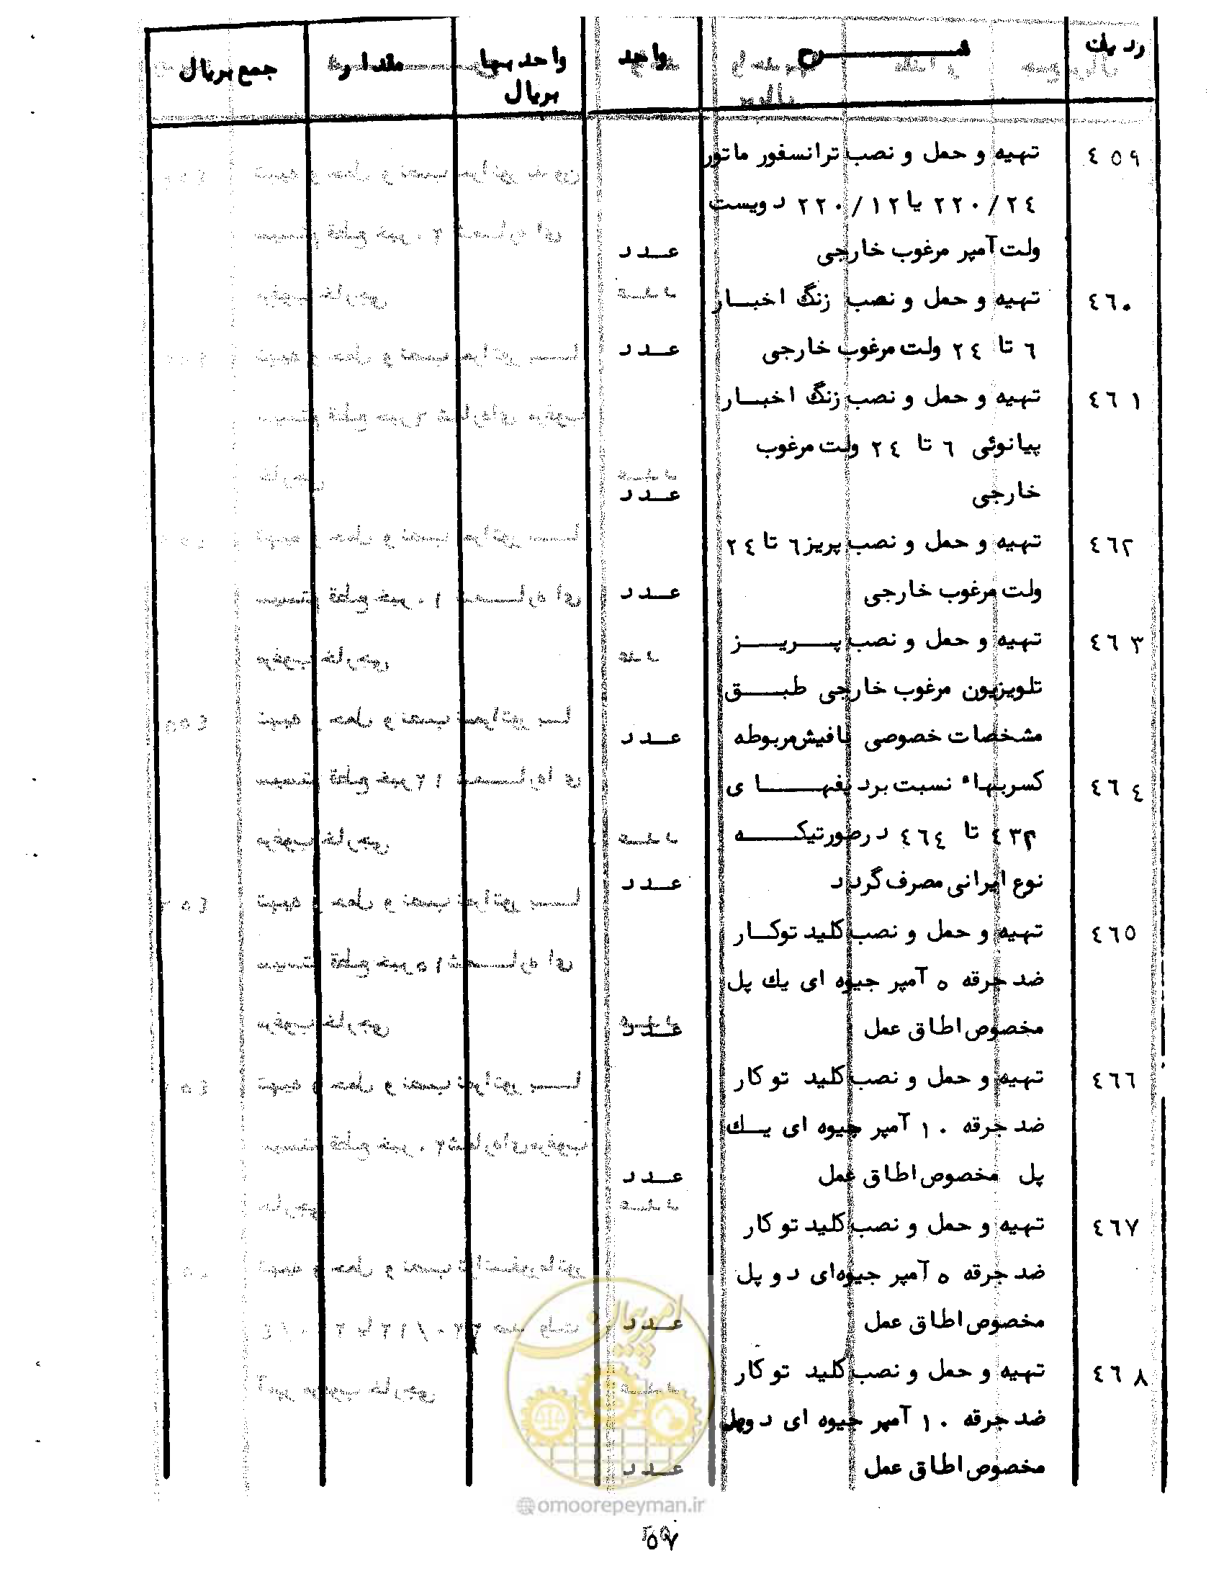 ردیف شرح واحد واحد بها بریال مقدار جمع بریال
٤٥٩ تهیه و حمل و نصب ترانسفور ماتور
٢٢٠/٢٤ یا ٢٢٠/١٢ دویست
ولت آمپر مرغوب خارجی عدد
٤٦٠ تهیه و حمل و نصب زنگ اخبار
٦ تا ٢٤ ولت مرغوب خارجی عدد
٤٦١ تهیه و حمل و نصب زنگ اخبار
پیانوئی ٦ تا ٢٤ ولت مرغوب
خارجی عدد
٤٦٢ تهیه و حمل و نصب پریز ٦ تا ٢٤
ولت مرغوب خارجی عدد
٤٦٣ تهیه و حمل و نصب پریز
تلویزیون مرغوب خارجی طبق
مشخصات خصوصی بافیش مربوطه عدد
٤٦٤ کسربهاء نسبت بردیفهای
٤٣٢ تا ٤٦٤ درصورتیکه
نوع ایرانی مصرف گردد عدد
٤٦٥ تهیه و حمل و نصب کلید توکار
ضد جرقه ٥ آمپر جیوه ای یك پل
مخصوص اطاق عمل عدد
٤٦٦ تهیه و حمل و نصب کلید توکار
ضد جرقه ١٠ آمپر جیوه ای یك
پل مخصوص اطاق عمل عدد
٤٦٧ تهیه و حمل و نصب کلید توکار
ضد جرقه ٥ آمپر جیوه‌ای دو پل
مخصوص اطاق عمل عدد
٤٦٨ تهیه و حمل و نصب کلید توکار
ضد جرقه ١٠ آمپر جیوه ای دوپل
مخصوص اطاق عمل عدد
امور پیمان
@omoorepeyman.ir
٥٧